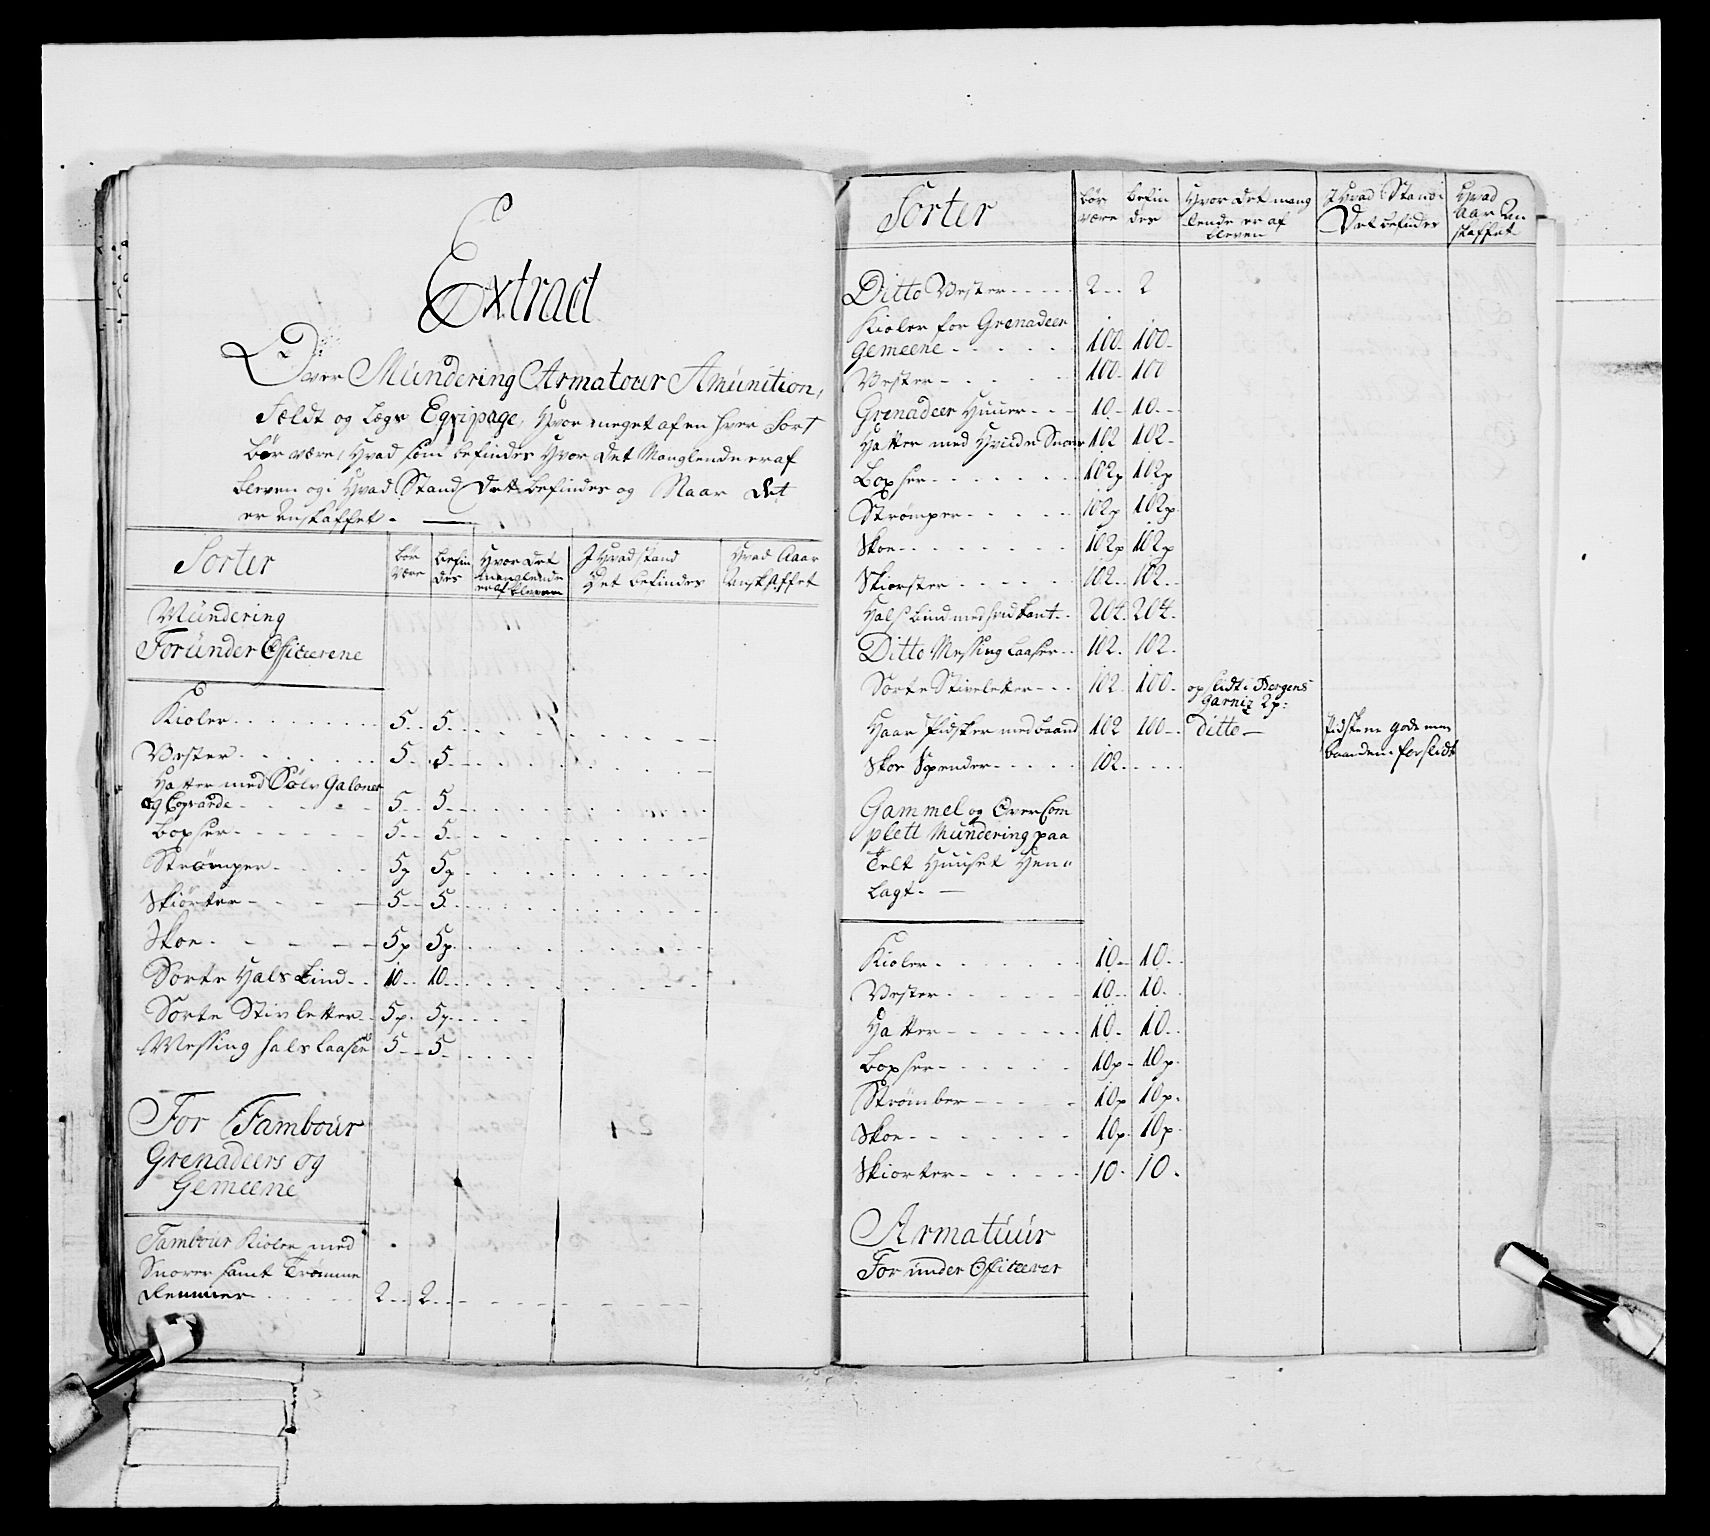 Extract
Over Mündering Armatour Amünition,
Feldt og Lægr Eqvipage, Hvor meget af en hver Sort
bør være, Hvad som befindes Hvor det Manglende er af
bleven og i Hvad Stand det befindes og Naar det
er Anskaffet.
Sorter
bør være
befindes
Hvor det manglende er af bleven
I Hvad stand Det befindes
Hvad Aaar Anskaffet
Mündering
For ünder Officerene
Kioler 5 5
Vester 5 5
Hatter med Sølv Galoner
og Coqvarde 5 5
Boxser 5 5
Strømper 5p 5p
Skiorter 5 5
Skoe 5p 5p
Sorte Hals bind 10 10
Sorte Stivletter 5p 5p
Messing hals laaser 5 5
For Tambour
Grenadeers og
Gemeene
Tambour Kioler med
Snorer samt Tromme
Remmer 2 2
Sorter
bør være
befindes
Hvor det manglende er af bleven
I Hvad Stand Det befindes
Hvad Aar Anskaffet
Ditto Vester 2 2
Kioler for Grenadeer
Gemeene 100 100
Vester 100 100
Grenadeer Huuer 10 10
Hatter med Hviide Snorer 102 102
Boxser 102p 102p
Strømper 102p 102p
Skoe 102p 102p
Skiorter 102 102
Hals bind med hvid kant 204 204
Ditto Messing Laaser 102 102
Sorte Stiveletter 102 100 opslidt i Bergens
Garniz 2p:
Haar Pidsker med baand 102 100 Ditto Pidskene gode men
baanden forslidt
Skoe Spender 102
Gammel og Over Com
plett Mündering paa
Telt Huuset Hen
lagt.
Kioler 10 10
Vester 10 10
Hatter 10 10
Boxser 10p 10p
Strømber 10p 10p
Skoe 10p 10p
Skiorter 10 10
Armatüür
For ünder Officerer